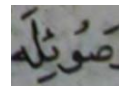 صَوُئِلَه